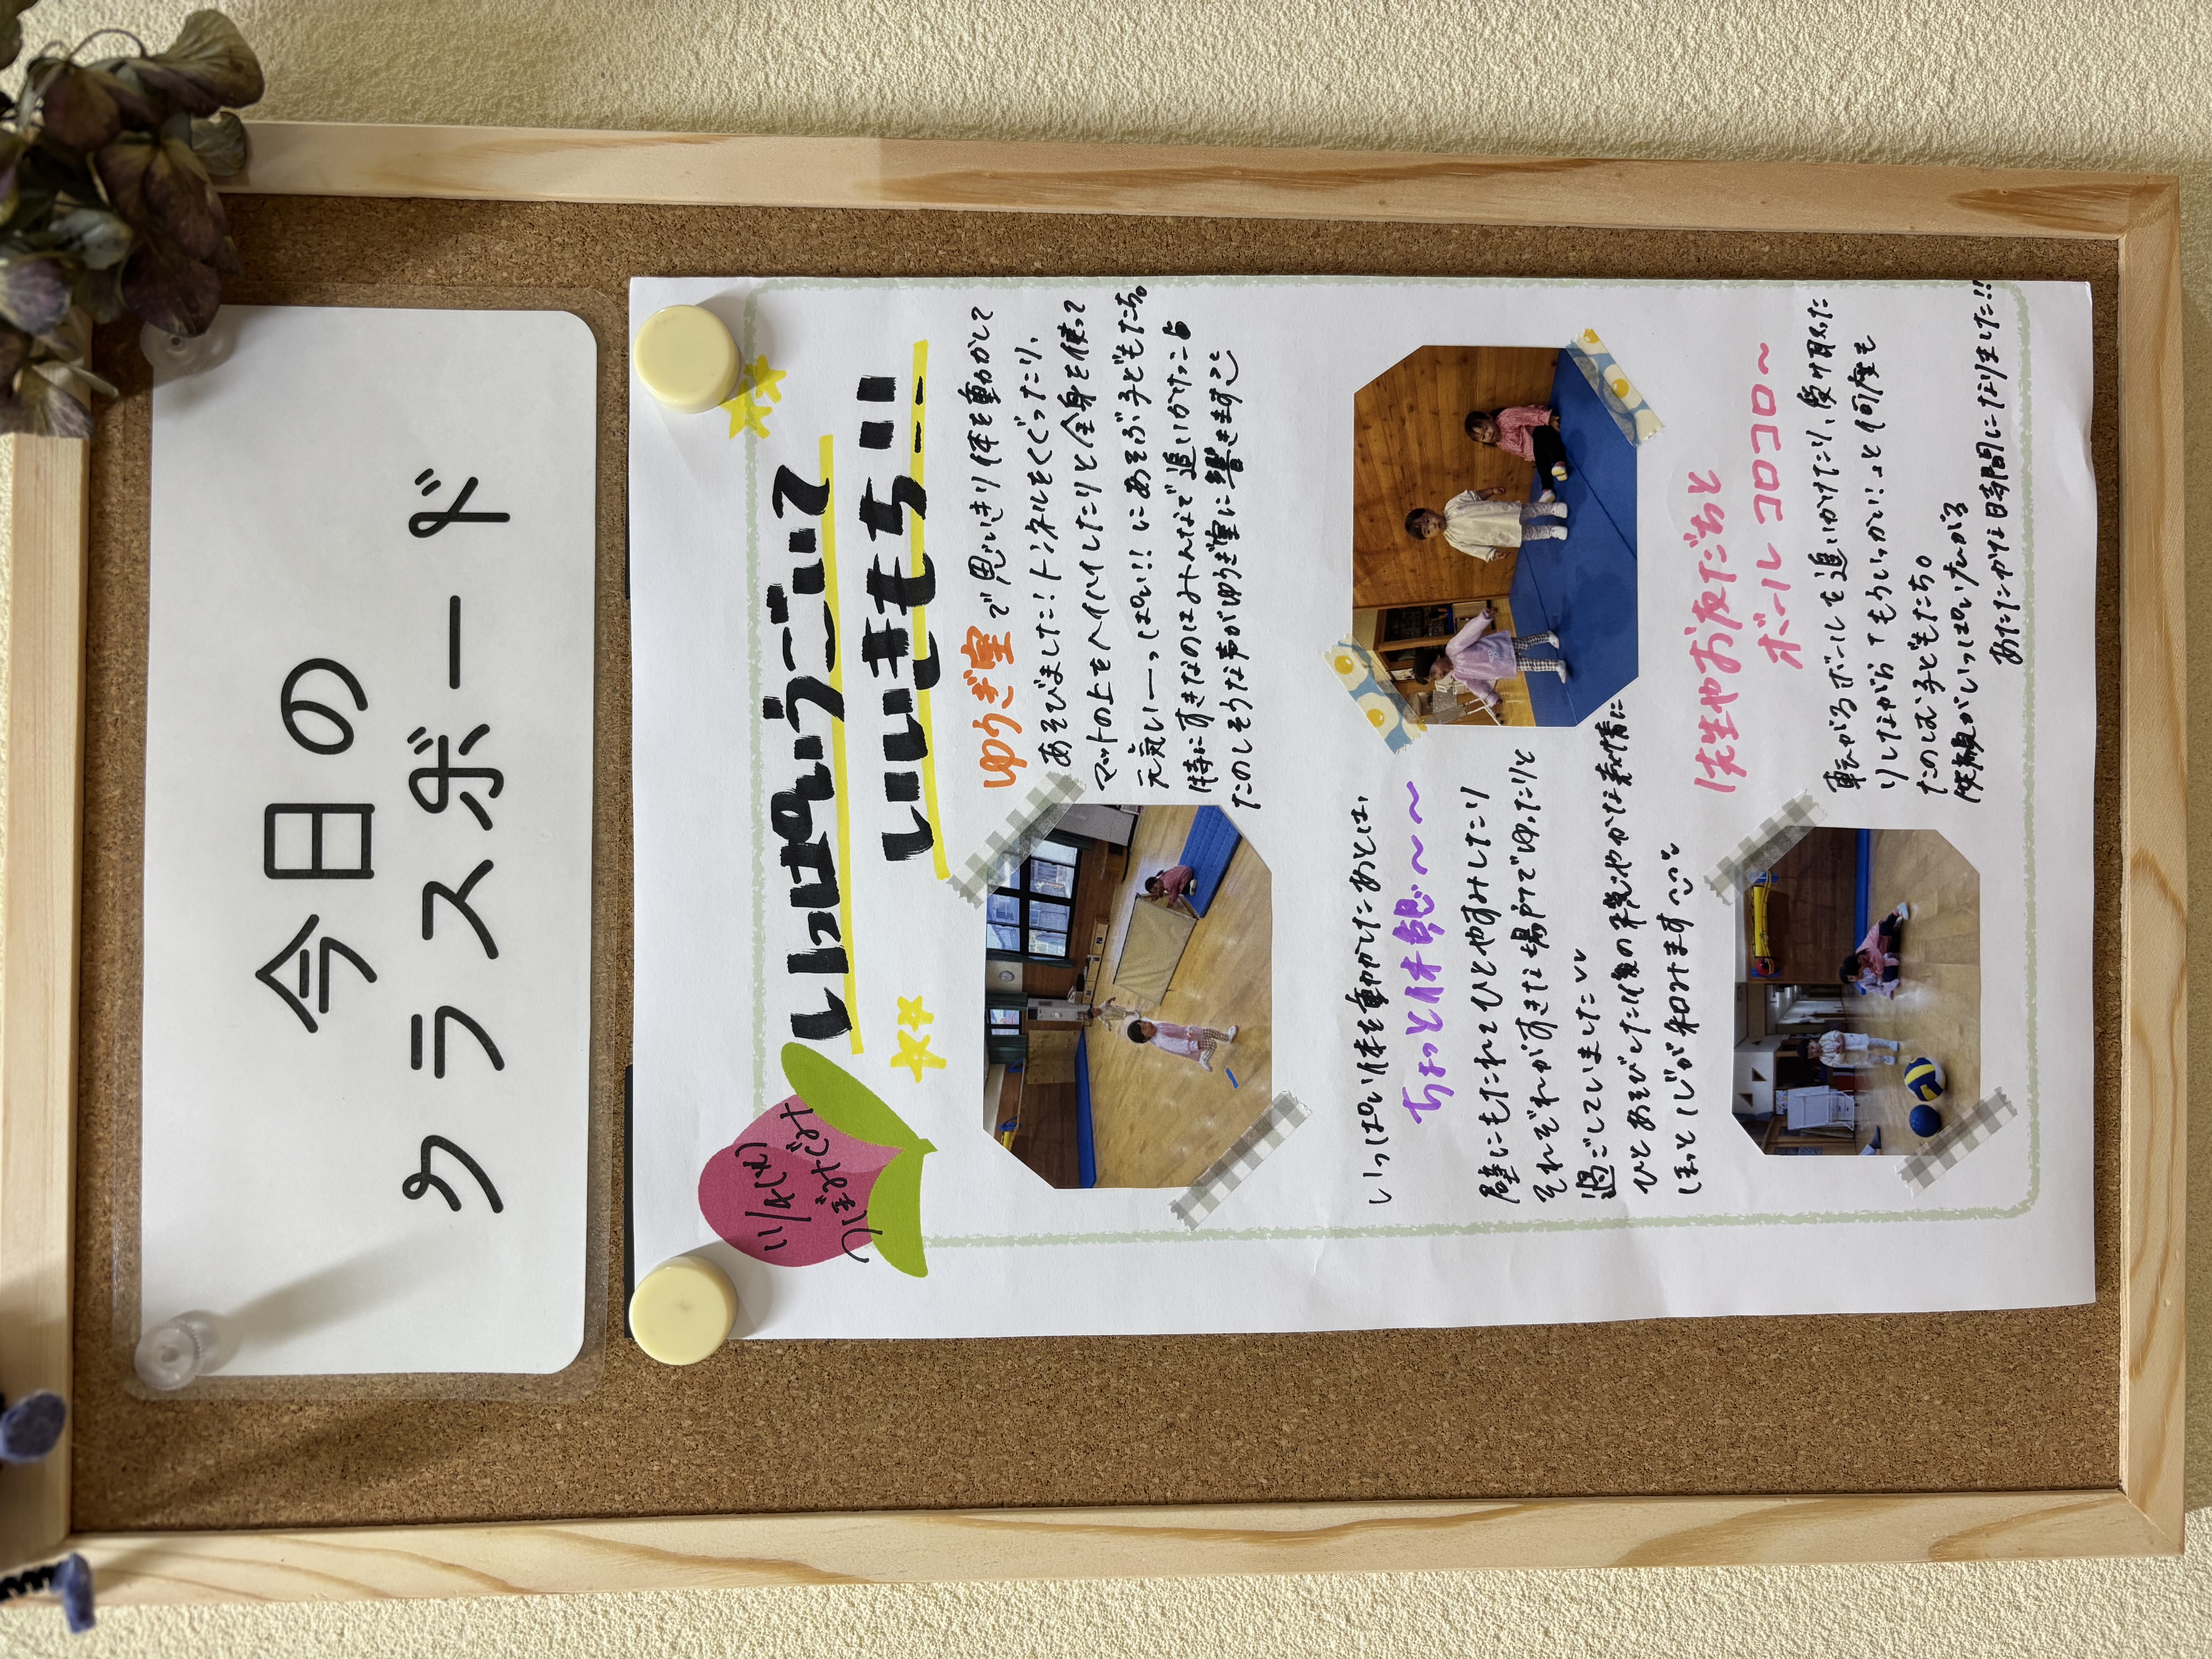 今日の
クラスボード
11/4(火)
つぼみぐみ
いっぱいうごいて
いいきもち!!
ゆうぎ室で思いきり体を動かして
あそびました!トンネルをくぐったり、
マットの上をハイハイしたりと全身を使って
元気いーっぱい!!にあそぶ子どもたち。
特にすきなのはみんなで追いかけっこ
たのしそうな声がゆうぎ室に響きますよ
いっぱい体を動かしたあとは、
ちょっと休憩〜〜
壁にもたれてひとやすみしたり
それぞれがすきな場所でゆったりと
過ごしていました
ひとあそびした後の穏やかな表情に
ほっと心が和みます
先生やお友だちと
ボールコロコロ〜
転がるボールを追いかけたり、受け取った
りしながら「もういっかい!」と何度も
たのしむ子どもたち。
笑顔がいっぱい広がる
あたたかな時間になりました!!